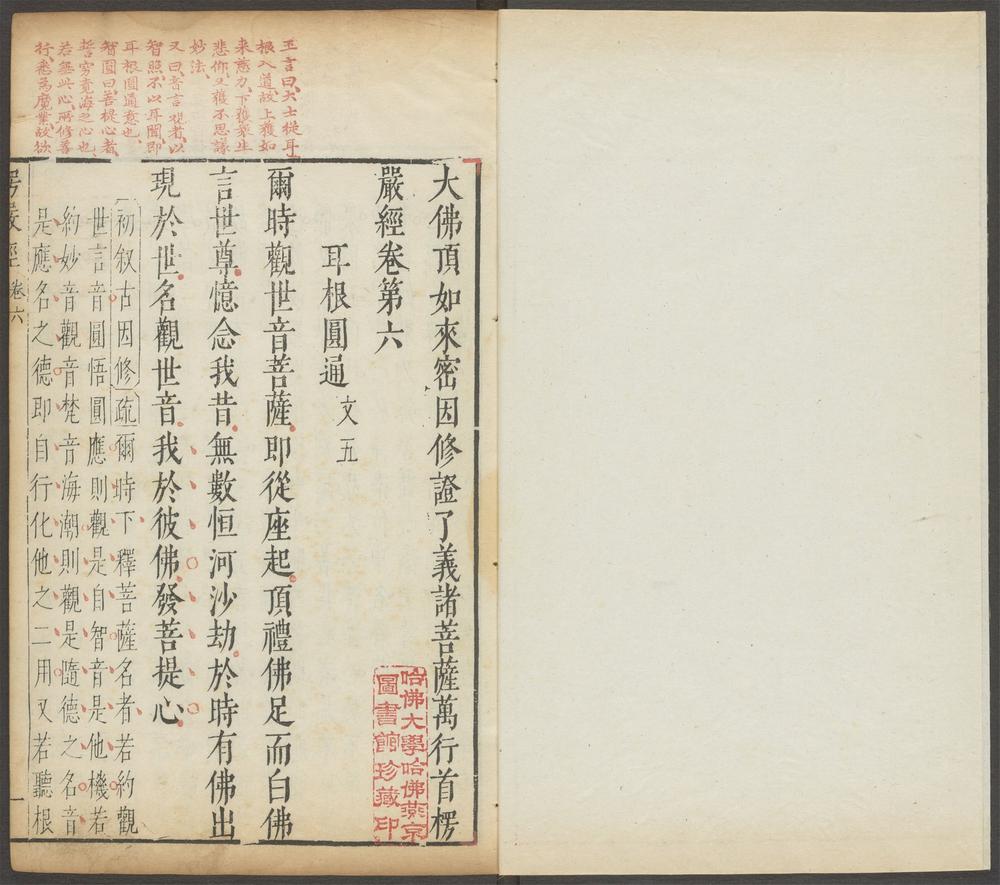 王言曰大士從耳
根入道故上獲如
來慈力下獲衆生
悲仰又獲不思議
妙法
又曰音言观者以
智照不以耳聞即
耳根圓通意也
智圓曰菩提心者
誓窮竟海之心也
若無此心所修善
行悉為魔業故欲
大佛頂如來密因修證了義諸菩薩萬行首楞
嚴經卷第六
耳根圓通文五
爾時觀世音菩薩即從座起頂禮佛足而白佛
言世尊憶念我昔無數恒河沙劫於時有佛出
現於世名觀世音我於彼佛發菩提心
初叙古因修疏爾時下釋菩薩名者若約觀
世言音圓悟圓應則觀是自智音是他機若
約妙音觀音梵音海潮則觀是隨德之名音
是應名之德即自行化他之二用又若聽根
楞嚴經 卷六 一
哈佛大學哈佛燕京
圖書館珍藏印